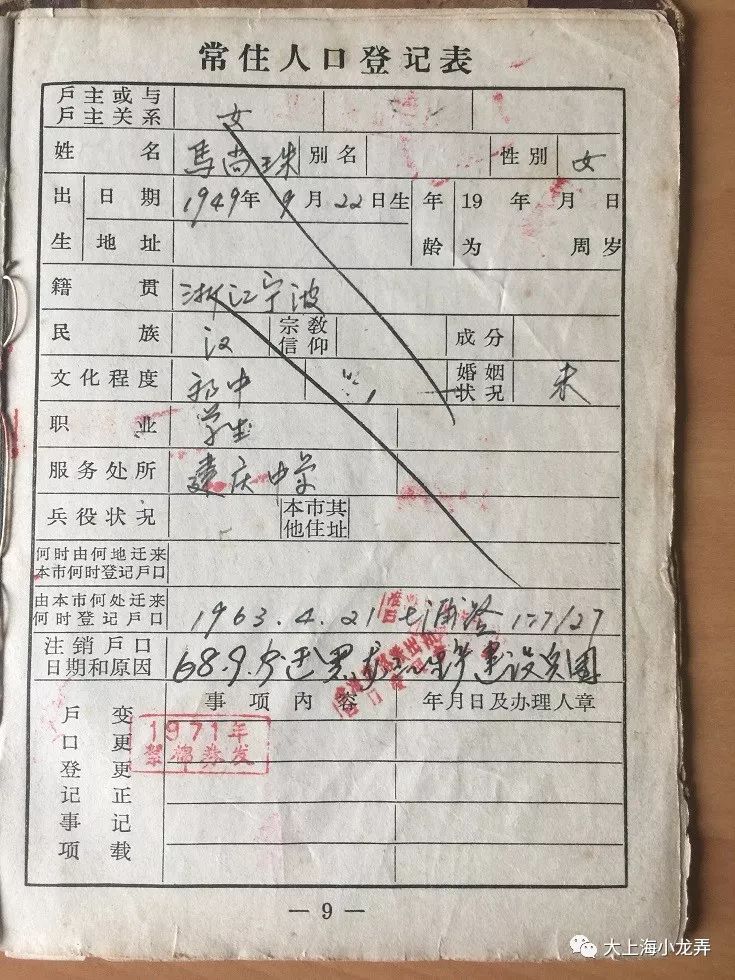 常住人口登记表
戶主或与戶主关系 女
姓名 馬尚珠 别名 性别 女
出生 日期 1949年9月22日生 年龄 19 年 月 日 为 周岁
地址
籍贯 浙江宁波
民族 汉 宗教信仰 成分
文化程度 初中 婚姻状况 未
职业 学生
服务处所 建庆中学
兵役状况 本市其他住址
何时由何地迁来本市何时登记戶口
由本市何处迁来何时登记戶口 1963.4.21 七浦路 127/27
注销戶口日期和原因 68.9.
建设兵團
戶口登记事项 变更更正记载 事项内容 年月日及办理人章
1971年
絮棉券发
— 9 —
大上海小龙弄